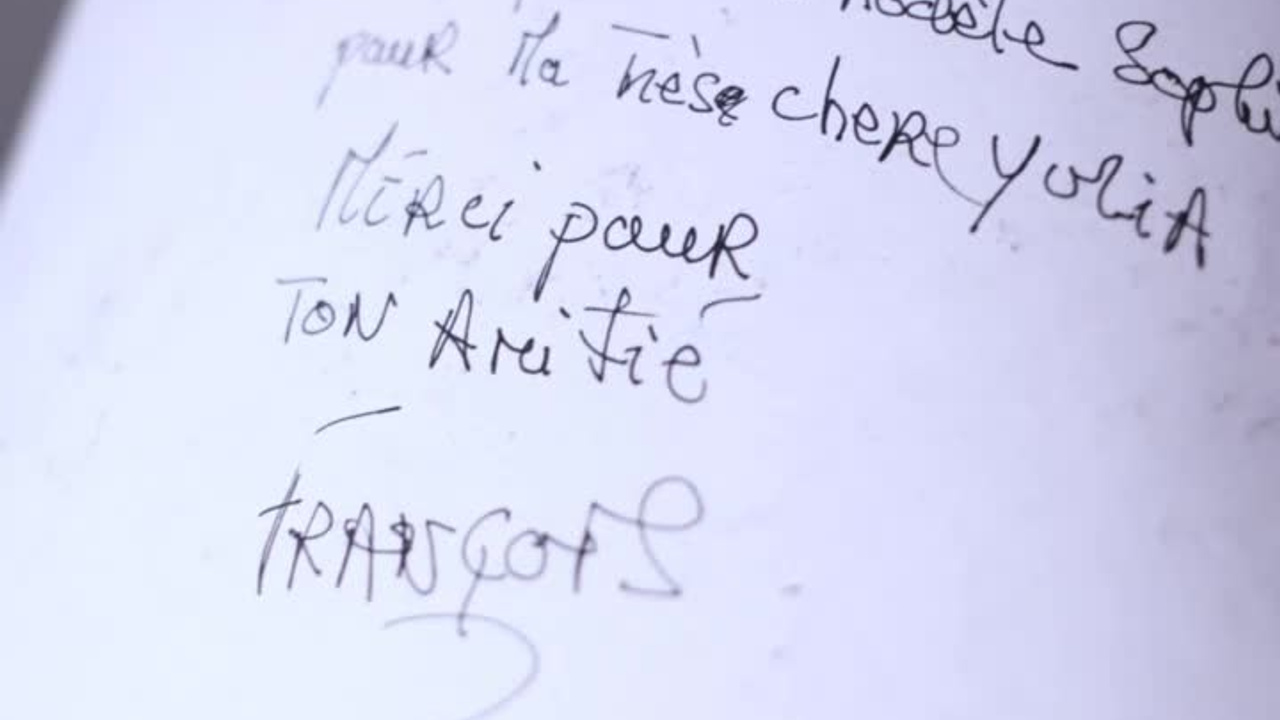 modèle Sophi
pour Ma Très chere YuliA
MERci pour
TON Amitié
FRANÇOIS